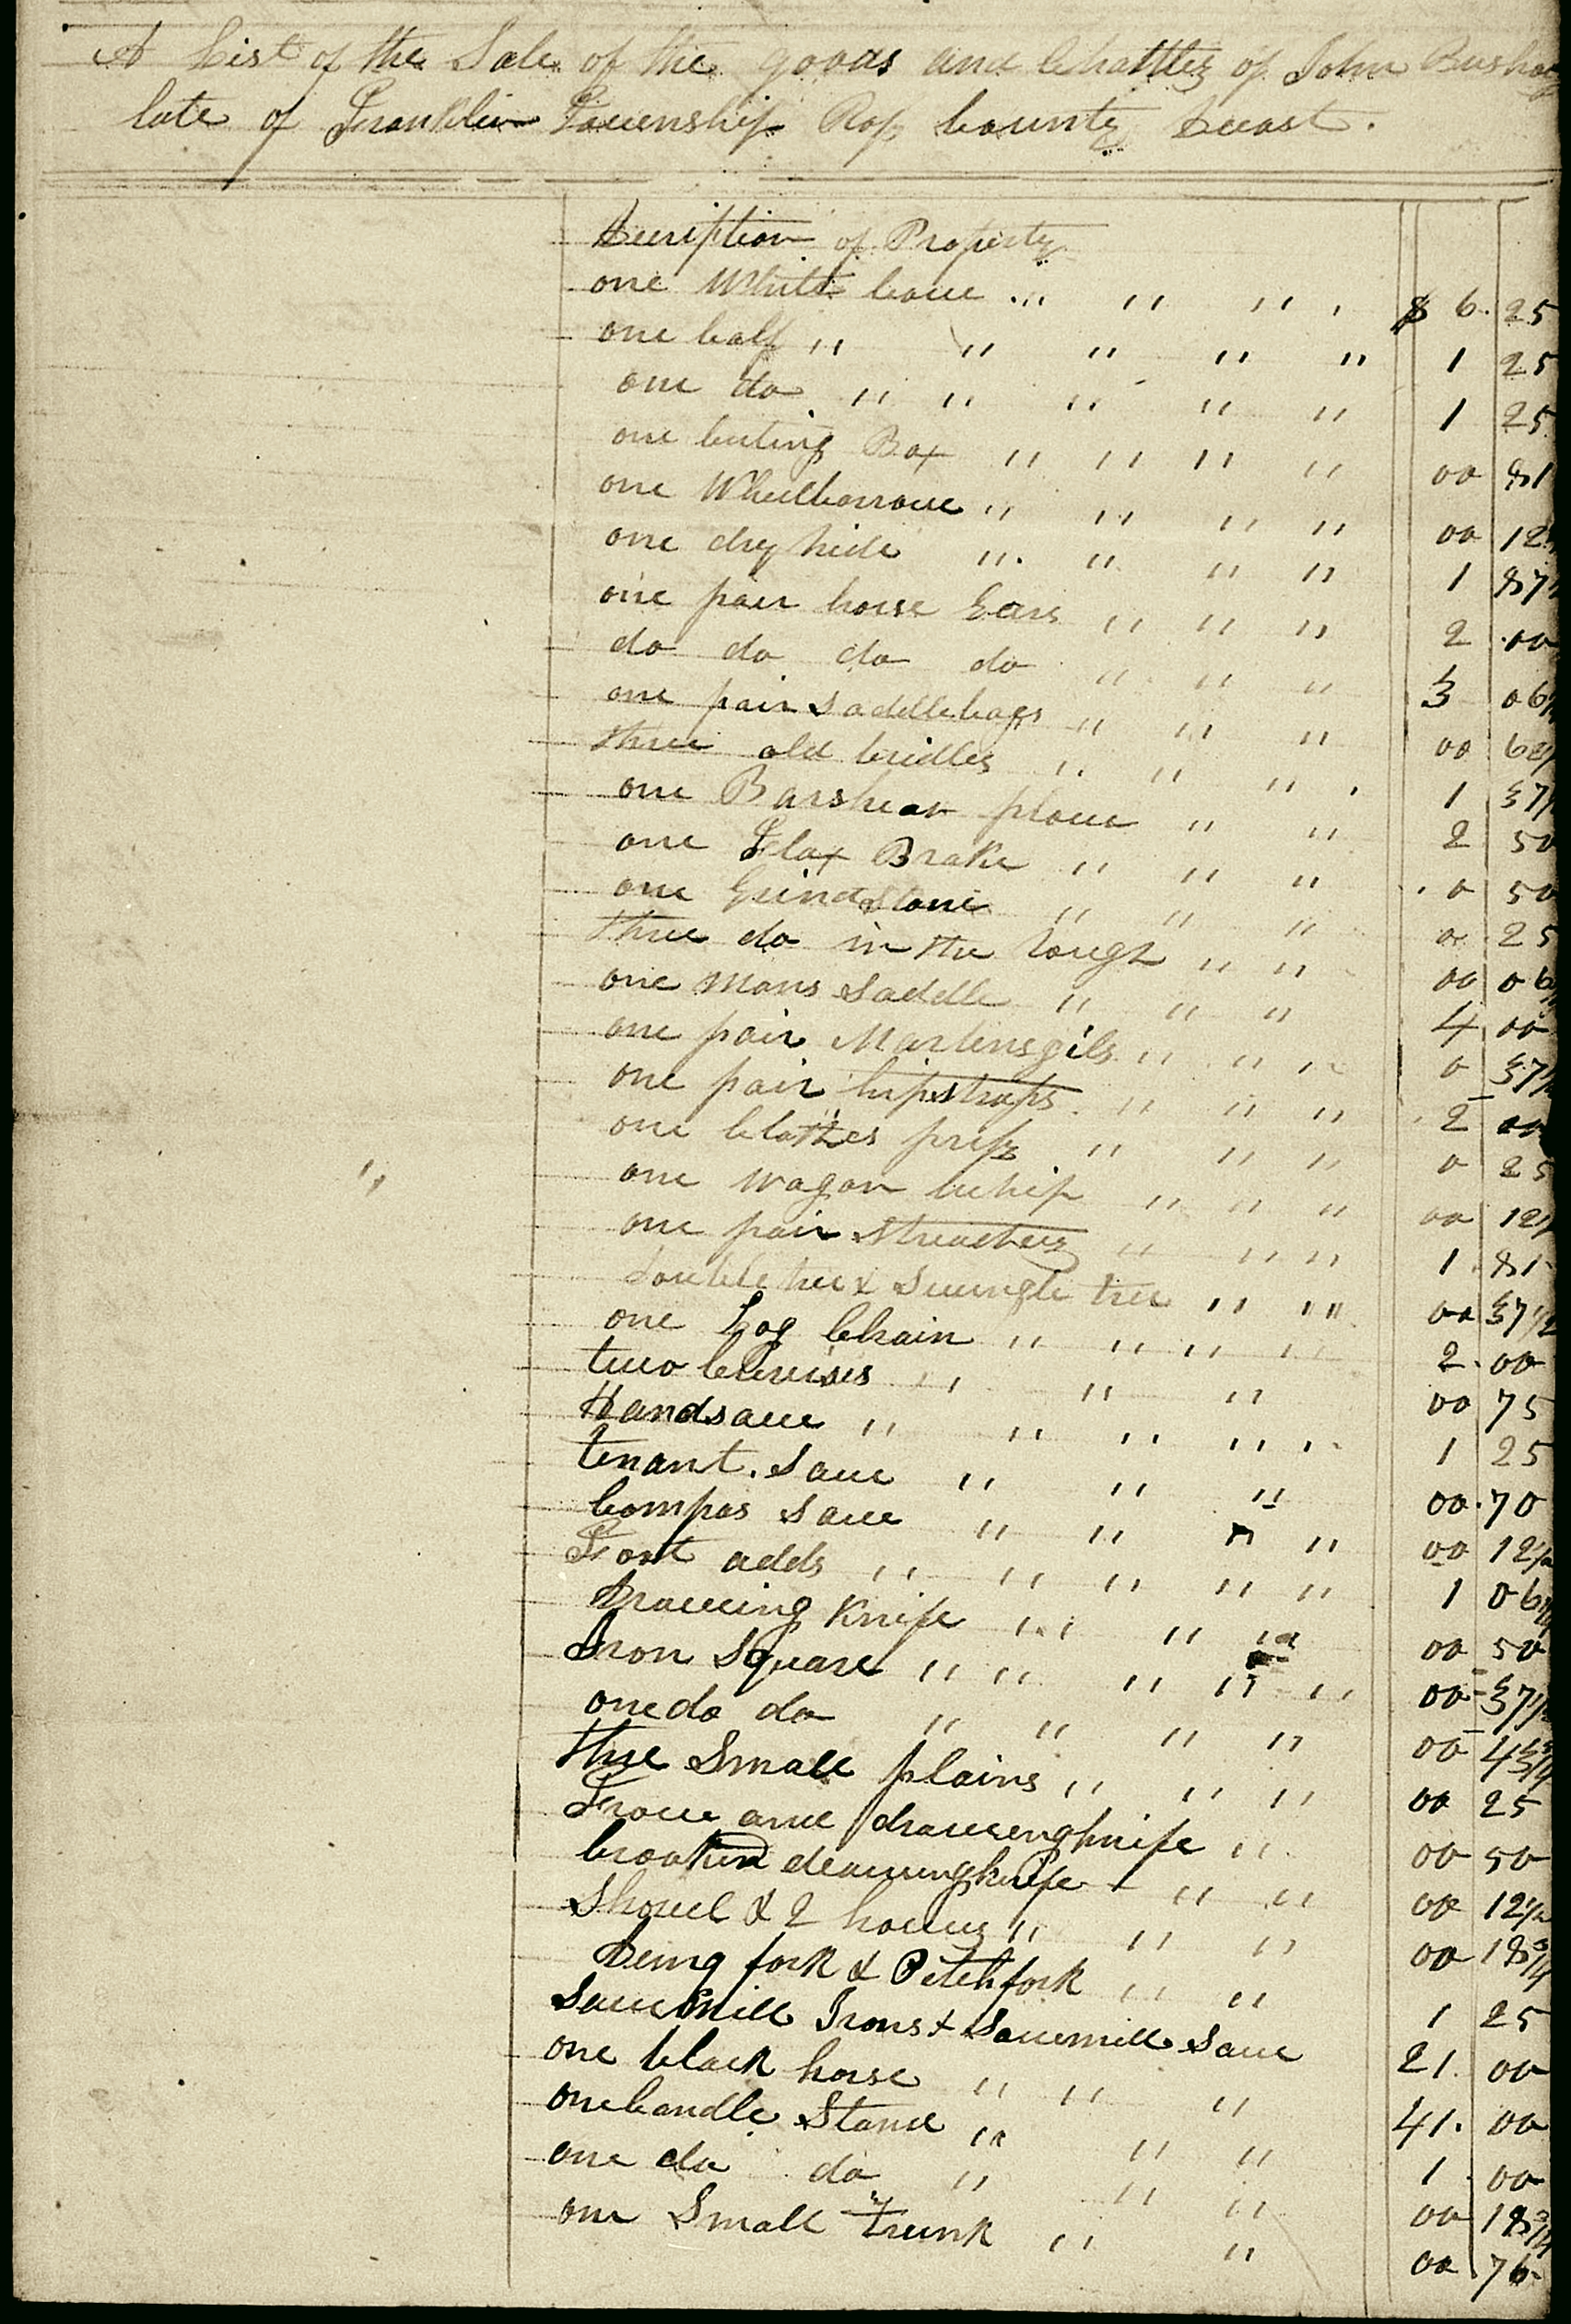 A List of the Sale of the goods and Chattles of John
late of Franklin Township Ross County Decast.
Decription of Property
one White Cow " " " $ 6.25
one Calf " " " " " 1 25
one do " " " " " 1 25
one Cuting Box " " " " 00 81
one Wheelbarrow " " " " 00 12
one dry hide " " " " 1 87
one pair horse Gears " " " 2 00
do do do do " " " 3 06
one pair Saddlebags " " " 00 62
three old bridles " " " 1 37
one Barshear plow " " 2 50
one Flax Brake " " " 0 50
one Grindstone " " " 0 25
three do in the rough " " 00 06
one Mans Saddle " " " 4 00
one pair Martensgils " " " 0 37 1/2
one pair hipstraps " " " 2 00
one Clothes press " " " 0 25
one wagon whip " " " 00 12
one pair Streachers " " " 1 81
Double tree & Swingle tree " " 00 37 1/2
one Log Chain " " " " 2.00
two Clevises " " " 00 75
Handsaw " " " " " 1 25
tenant. Saw " " " 00.70
Compas Saw " " " " 00 12 1/2
Foot adds " " " " " 1 06
Drawing Knife " " " 00 50
Iron Square " " " " " 00 37 1/2
one do do " " " " 00 43 3/4
three Small plains " " " 00 25
Frow and drawengknife " 00 50
broaken drawingknife " " 00 12 1/2
Shovel & 2 howes " " " 00 18 3/4
Dung fork & Pitchfork " " 1 25
Sawmill Irons & Sawmill Saw 21. 00
one black horse " " " 41. 00
one Candle Stand " " " 1 00
one do do " " " 00 18 3/4
one Small trunk " " 00 76